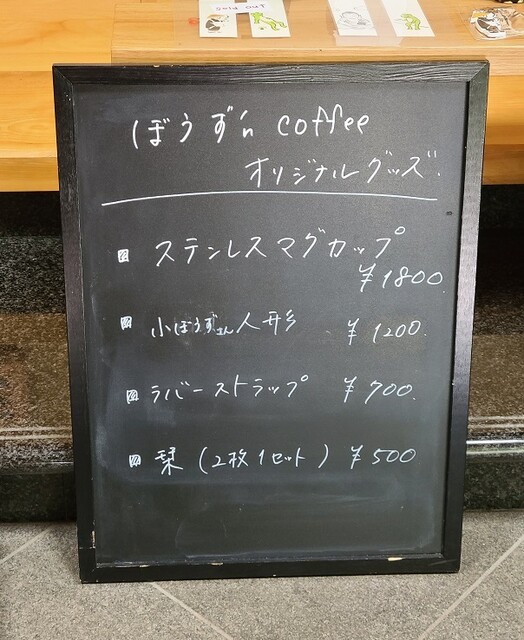 SOLD OUT
ぼうず'n coffee
オリジナルグッズ.
ステンレスマグカップ
¥1800.
小ぼうずさん人形 ¥1200.
ラバーストラップ ¥700.
栞(2枚1セット) ¥500